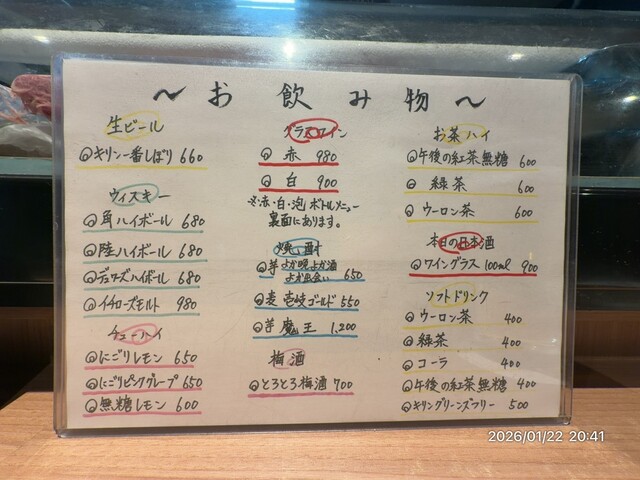 ～お飲み物～
生ビール
キリン一番しぼり 660
ウィスキー
角ハイボール 680
陸ハイボール 680
デュワーズハイボール 680
イチローズモルト 980
チューハイ
にごりレモン 650
にごりピングレープ 650
無糖レモン 600
グラスワイン
赤 980
白 900
※赤・白・泡ボトルメニュー
裏面にあります。
焼酎
芋 よか晩よか酒
よか出会い 650
麦 壱岐ゴールド 550
芋 魔王 1,200
梅酒
とろとろ梅酒 700
お茶ハイ
午後の紅茶無糖 600
緑茶 600
ウーロン茶 600
本日の日本酒
ワイングラス 100ml 900
ソフトドリンク
ウーロン茶 400
緑茶 400
コーラ 400
午後の紅茶無糖 400
キリングリーンズフリー 500
2026/01/22 20:41